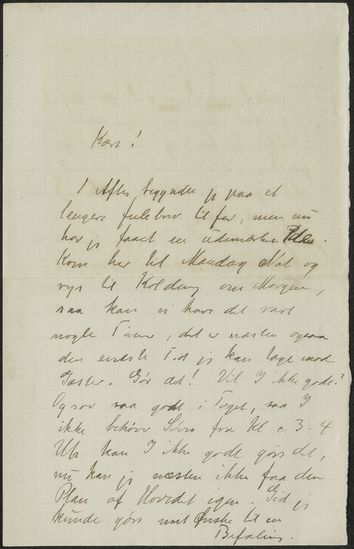 Kære!
I Aften begyndte jeg paa et
længere Julebrev til før, men nu
har jeg faaet en udmærket Ide.
Kom her til Mandag Nat og
rejs til Kolding om Morgen,
saa kan vi have det rart
nogle Timer, det er næsten ogsaa
den eneste Tid jeg kan tage mod
Gæster. Gør det! Vil I ikke godt?
Og sov saa godt i Toget, saa I
ikke behøver Søvn fra Kl c 3-4
Uh kan I ikke godt gøre det,
nu kan jeg næsten ikke faa den
Plan af Hovedet igen. Gid jeg
kunde gøre mit Ønske til en
Befaling.